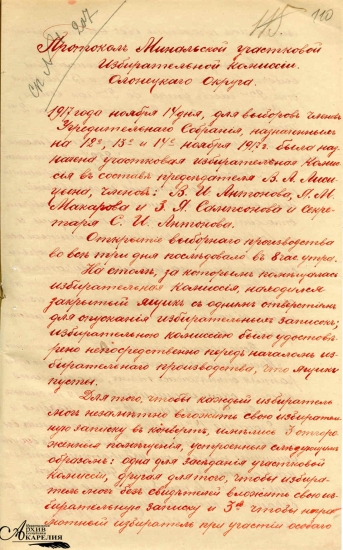 110
Протоколъ Минальской участковой
Избирательной Комиссіи
Олонецкаго Округа.
1917 года ноября 14 дня, для выборовъ членовъ
Учредительнаго Собранія, назначенныхъ
на 12е, 13е и 14е ноября 1917 г. была наз-
начена участковая избирательная комис-
сія въ составѣ предсѣдателя В. А. Лиси-
цына, членовъ: В. И. Антонова, П. М.
Макарова и З. Я. Сампсонова и секре-
таря С. И. Антонова.
Открытіе выборнаго производства
во всѣ три дня послѣдовало въ 8 час. утра.
На столѣ, за которымъ помѣщалась
избирательная комиссія, находился
закрытый ящикъ съ однимъ отверстіемъ
для опусканія избирательныхъ записокъ;
избирательною комиссіею было удостовѣ-
рено непосредственно передъ началомъ из-
бирательнаго производства, что ящикъ
пустъ.
Для того, чтобы каждый избиратель
могъ незамѣтно вложить свою избиратель-
ную записку въ конвертъ, имѣлись 3 отгоро-
женныя помѣщенія, устроенныя слѣдующимъ
образомъ: одна для засѣданія участковой
комиссіи, другая для того, чтобы избира-
тель могъ безъ свидѣтелей вложить свою из-
бирательную записку и 3я чтобы негра-
мотный избиратель при участіи особаго
АРХИВ
КАРЕЛИЯ